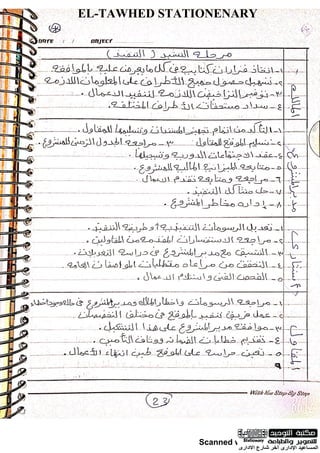 EL-TAWHED STATIONENARY
DATE / / OBJECT
مرحلة التشييد (التنفيذ)
المالك
١- اتخاذ قرارات كتابية فى كل ما يعرض عليه بالموافقة
٢- تسهيل حصول جميع الأطراف على المعلومات اللازمة
٣- توفير التراخيص اللازمة لتنفيذ الأعمال.
٤- سداد مستحقات الأطراف المختلفة.
مدير المشروع
١- التأكد من اتمام تجهيز المستندات وتسليمها للمقاول.
٢- تسليم الموقع للمقاول ٣- مراجعة الجدول الزمنى للمشروع.
٤- عقد الاجتماعات الدورية وتسجيلها.
٥- متابعة الميزانية المالية للمشروع.
٦- مراقبة ومتابعة تقدم الأعمال
٧- حل مشاكل التنفيذ.
٨- إدارة مخاطر المشروع.
الاستشارى
١- تعديل الرسومات التنفيذية أو طريقة التنفيذ.
٢- مراجعة الاستفسارات المقدمة من المقاولين.
٣- التنسيق مع مدير المشروع فى دراسة التعديلات.
٤- التحقق من مراعاة متطلبات المواصفات العامة.
٥- الفحص الفنى واستلام الأعمال.
المقاول
١- مراجعة الرسومات واخطار المالك ومدير المشروع فى حالة وجود اخطاء
٢- عمل فريق تنفيذ بالموقع فى مختلف التخصصات
٣- موافقة مدير المشروع على هذا التشكيل.
٤- تقديم خطابات الضمان ووثائق التأمين.
٥- تعيين حراسة على الموقع حتى انتهاء الأعمال.
With the Step By Step
23
Scanned
مكتبة التوحيد
Stationery
للتصوير والطباعة
المساعيد الإدارى آخر شارع الإدارى